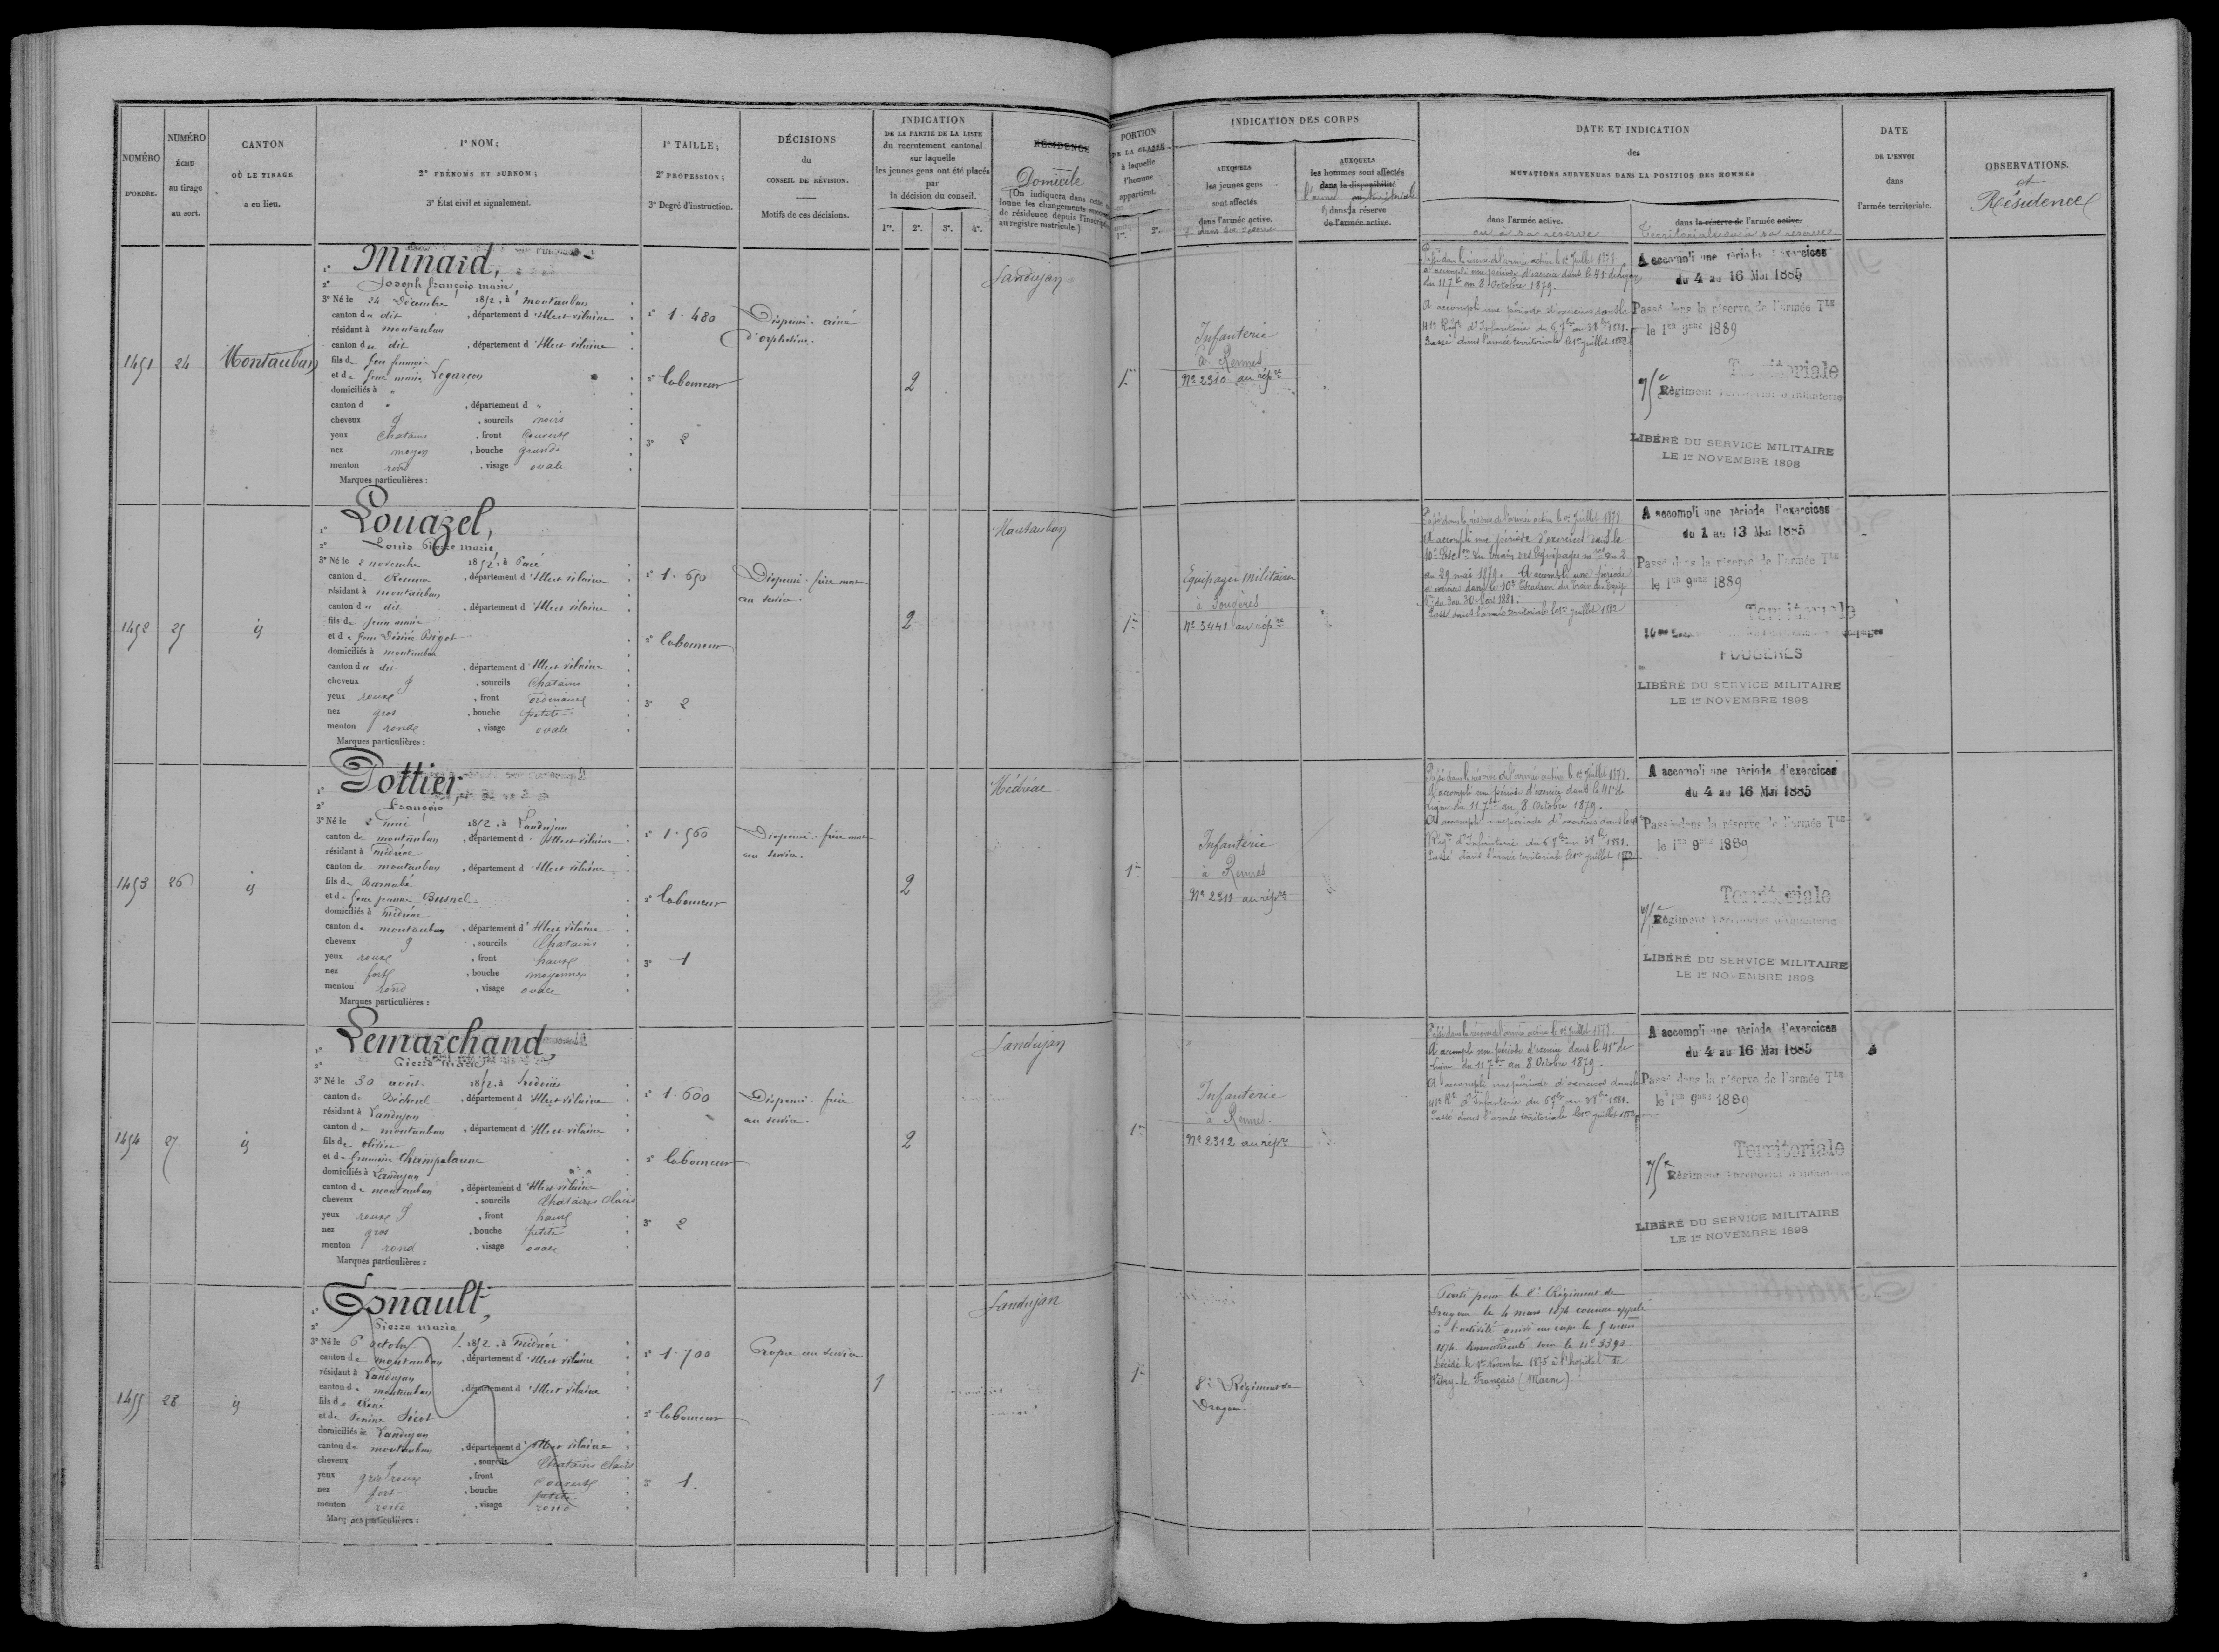 NUMÉRO D'ORDRE.
NUMÉRO ÉCHU au tirage au sort.
CANTON OÙ LE TIRAGE a eu lieu.
1° NOM;
2° PRÉNOMS ET SURNOM;
3° État civil et signalement.
1° TAILLE;
2° PROFESSION;
3° Degré d'instruction.
DÉCISIONS
du
CONSEIL DE RÉVISION.
Motifs de ces décisions.
INDICATION
DE LA PARTIE DE LA LISTE
du recrutement cantonal
sur laquelle
les jeunes gens ont été placés
par
la décision du conseil.
1re. 2e. 3e. 4e.
RÉSIDENCE
Domicile
(On indiquera dans cette
lonne les changements
de résidence depuis l'inscription
au registre matricule.)
PORTION
DE LA CLASSE
à laquelle
l'homme
appartient.
1re. 2e.
INDICATION DES CORPS
AUXQUELS
les jeunes gens
sont affectés
dans l'armée active.
AUXQUELS
les hommes sont affectés
dans la disponibilité
dans la réserve
de l'armée active.
DATE ET INDICATION
des
MUTATIONS SURVENUES DANS LA POSITION DES HOMMES
dans l'armée active.
ou à sa réserve
dans la réserve de l'armée active.
Territoriale ou à sa réserve.
DATE
DE L'ENVOI
dans
l'armée territoriale.
OBSERVATIONS.
et
Résidence
1451
24
Montauban
1° Minard,
2° Joseph françois marie
3° Né le 24 Décembre 1852, à Montauban
canton du dit, département d'Ille et vilaine
résidant à montauban
canton du dit, département d'Ille et vilaine
fils de feu
et de feue marie
domiciliés à "
canton d ", département d "
cheveux, sourcils noirs
yeux Chatains, front Couvert
nez moyen, bouche grande
menton rond, visage ovale
Marques particulières :
1° 1.480
2° laboureur
3° 2
Dispensé - ainé
d'orphelins.
2
Landujan
1re
Infanterie
à Rennes
No 2310 au répre
Passé dans la réserve de l'armée active le 1er Juillet 1878.
A accompli une période d'exercice dans le 41e de ligne
du 11 7bre au 8 Octobre 1879.
A accompli une période d'exercices dans le
41e Régt d'Infanterie du
Passé dans l'armée territoriale le 1er juillet 1882
A accompli une période d'exercices
du 4 au 16 Mai 1885
Passé dans la réserve de l'armée Tle
le 1er 9bre 1889
Territoriale
75e Régiment Territorial d'Infanterie
LIBÉRÉ DU SERVICE MILITAIRE
LE 1er NOVEMBRE 1898
1452
25
id
1° Louazel,
2° Louis Pierre marie
3° Né le 2 novembre 1852, à Pacé
canton de Rennes, département d'Ille et vilaine
résidant à montauban
canton du dit, département d'Ille et vilaine
fils de Jean marie
et de feue Désirée Bigot
domiciliés à montauban
canton du dit, département d'Ille et vilaine
cheveux, sourcils Chatains
yeux roux, front ordinaire
nez gros, bouche petite
menton ronde, visage ovale
Marques particulières :
1° 1.650
2° laboureur
3° 2
Dispensé - frère mort
au service.
2
Montauban
1re
Equipages militaires
à Fougères
No 3441 au répre
Passé dans la réserve de l'armée active le 1er Juillet 1878
A accompli une période d'exercices dans le
10e du train des Equipages mres du 2
au 29 mai 1879. A accompli une période
d'exercices dans le 10e Escadron du Train des Equip.
du 3 au 30 Mars 1881.
Passé dans l'armée territoriale le 1er juillet 1882
A accompli une période d'exercices
du 1 au 13 Mai 1885
Passé dans la réserve de l'armée Tle
le 1er 9bre 1889
Territoriale
FOUGÈRES
LIBÉRÉ DU SERVICE MILITAIRE
LE 1er NOVEMBRE 1898
1453
26
id
1° Pottier,
2° François
3° Né le 2 mai 1852, à Landujan
canton de montauban, département d'Ille et vilaine
résidant à médréac
canton de montauban, département d'Ille et vilaine
fils de Barnabé
et de feue jeanne Busnel
domiciliés à médréac
canton de montauban, département d'Ille et vilaine
cheveux, sourcils Chatains
yeux roux, front haut
nez fort, bouche moyenne
menton rond, visage ovale
Marques particulières :
1° 1.560
2° laboureur
3° 1
Dispensé - frère mort
au service.
2
Médréac
1re
Infanterie
à Rennes
No 2311 au répre
Passé dans la réserve de l'armée active le 1er Juillet 1878.
A accompli une période d'exercice dans le 41e de
ligne du 11 7bre au 8 Octobre 1879.
A accompli une période d'exercices dans le 41e
Régt d'Infanterie du
Passé dans l'armée territoriale le 1er juillet 1882
A accompli une période d'exercices
du 4 au 16 Mai 1885
Passé dans la réserve de l'armée Tle
le 1er 9bre 1889
Territoriale
75e Régiment Territorial d'Infanterie
LIBÉRÉ DU SERVICE MILITAIRE
LE 1er NOVEMBRE 1898
1454
27
id
1° Lemarchand
2° Pierre marie
3° Né le 30 avril 1852, à
canton de Bécherel, département d'Ille et vilaine
résidant à Landujan
canton de montauban, département d'Ille et vilaine
fils de olivier
et de françoise Champalaune
domiciliés à Landujan
canton de montauban, département d'Ille et vilaine
cheveux, sourcils Chatains Clairs
yeux roux, front haut
nez gros, bouche petite
menton rond, visage ovale
Marques particulières :
1° 1.600
2° laboureur
3° 2
Dispensé - frère
au service.
2
Landujan
1re
Infanterie
à Rennes.
No 2312 au répre
Passé dans la réserve de l'armée active le 1er Juillet 1878.
A accompli une période d'exercice dans le 41e de
ligne du 11 7bre au 8 Octobre 1879.
A accompli une période d'exercices dans le
41e Rt d'Infanterie du
Passé dans l'armée territoriale le 1er juillet 1882
A accompli une période d'exercices
du 4 au 16 Mai 1885
Passé dans la réserve de l'armée Tle
le 1er 9bre 1889
Territoriale
75e Régiment Territorial d'Infanterie
LIBÉRÉ DU SERVICE MILITAIRE
LE 1er NOVEMBRE 1898
1455
28
id
1° Esnault,
2° Pierre marie
3° Né le 6 octobre 1852, à médréac
canton de montauban, département d'Ille et vilaine
résidant à Landujan
canton de montauban, département d'Ille et vilaine
fils de René
et de
domiciliés à Landujan
canton de montauban, département d'Ille et vilaine
cheveux, sourcils Chatains clairs
yeux gris roux, front couvert
nez fort, bouche petite
menton rond, visage rond
Marques particulières :
1° 1.700
2° laboureur
3° 1.
Propre au service
1
Landujan
1re
8e Régiment de
Dragons.
Parti pour le 8e Régiment de
Dragons le 4 mars 1874 comme appelé
à l'activité arrivé au corps le 5 mars
1874. Immatriculé sous le No 3390
Décédé le 1er 1875 à l'hopital de
Vitry-le Français (Marne)